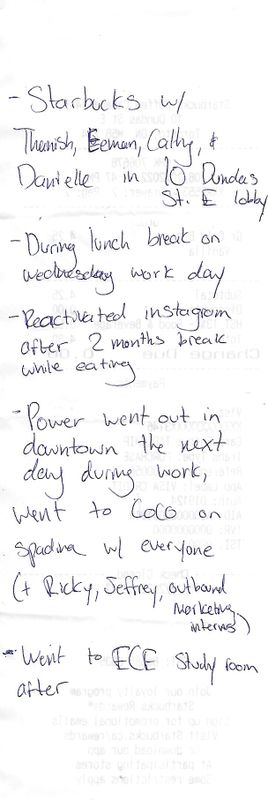 - Starbucks w/
Thanish, Eeman, Cathy, &
Danielle in 10 Dundas
St. E lobby
- During lunch break on
wednesday work day
- Reactivated instagram
after 2 months break
while eating
- Power went out in
downtown the next
day during work,
went to CoCo on
spadina w/ everyone
(+ Ricky, Jeffrey, outbound
marketing
interns)
- Went to ECE Study room
after